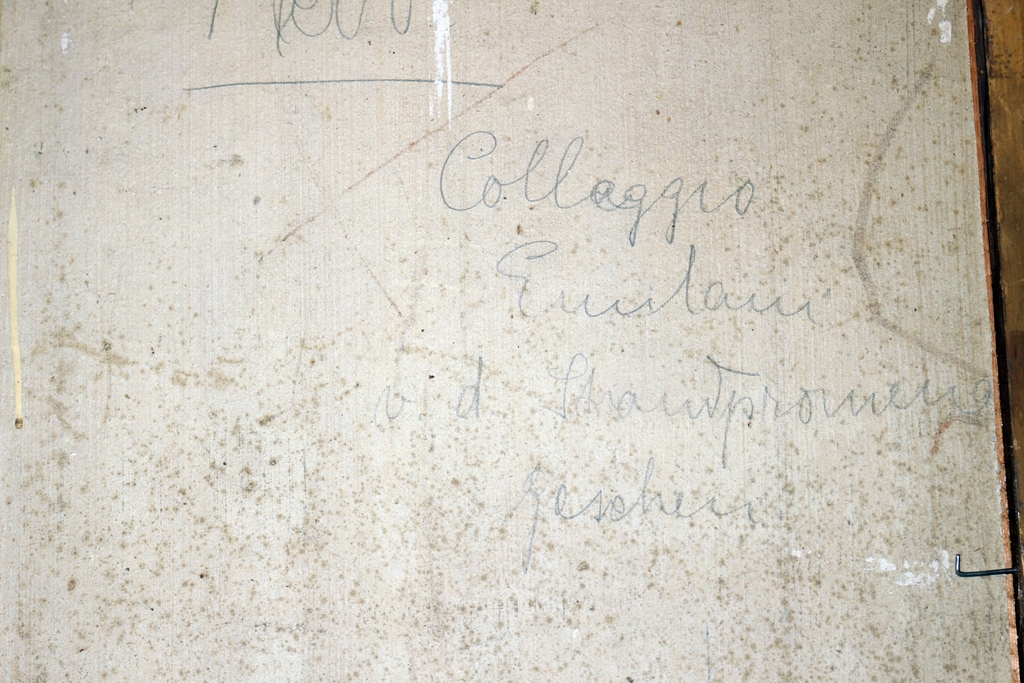 Nervi
Collaggio
Emilani
v d Strandpromena
geschen